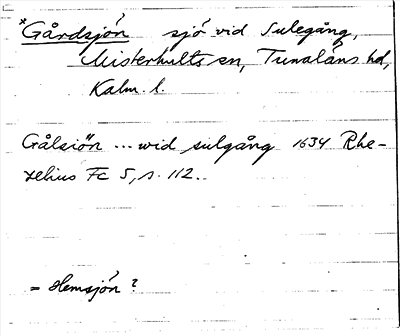 *Gårdsjön sjö vid Sulegång,
Misterhults sn, Tunaläns hd,
Kalm. l.
Gålsiön ... wid sulgång 1634 Rhe-
zelius Fc 5, s. 112.
= Hemsjön?